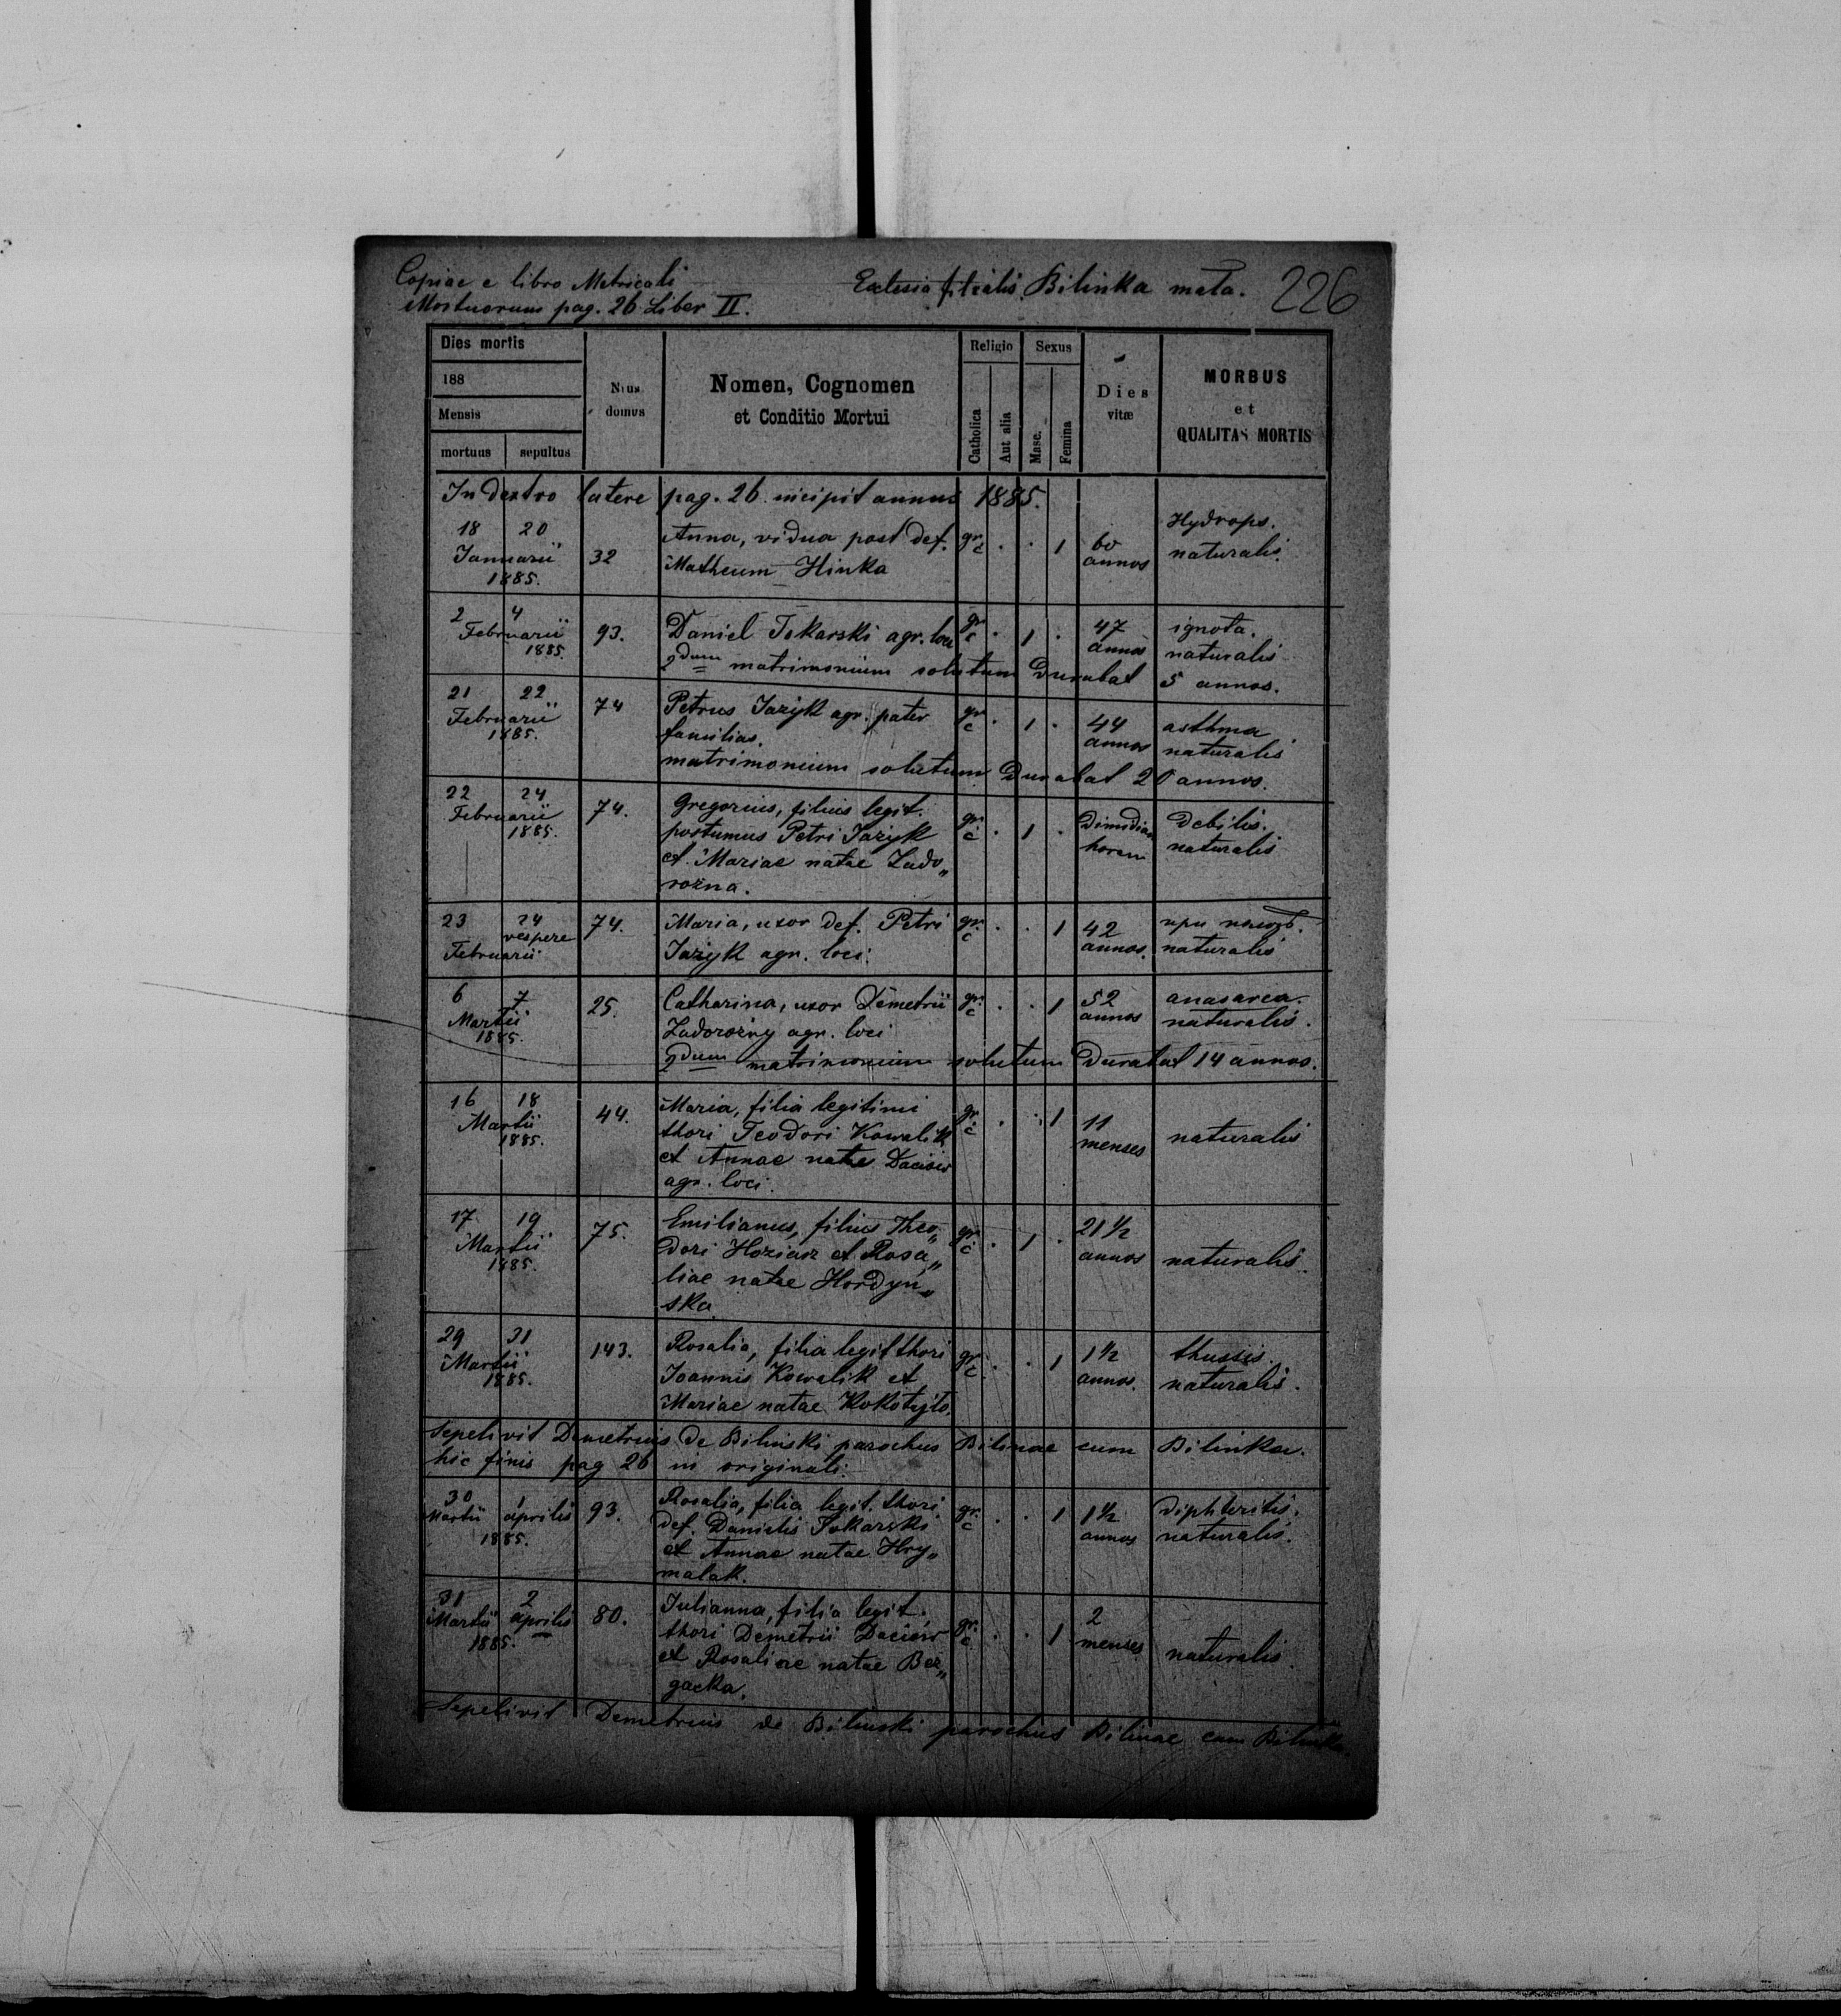 Copiae e libro Metricali
Mortuorum pag. 26 Liber II.
Eclesia filialis Bilinka mała.
226
Dies mortis
188
Mensis
mortuus sepultus
Nrus domus
Nomen, Cognomen
et Conditio Mortui
Religio
Catholica
Aut alia
Sexus
Masc.
Femina
Dies
vitæ
MORBUS
et
QUALITAS MORTIS
In dextro latere pag. 26 incipit annus 1885.
18 20
Januarii
1885.
32
Anna, vidua post def.
Matheum Hinka
gr.
c
. . 1
60
annos
Hydrops.
naturalis.
2 4
Februarii
1885.
93.
Daniel Tokarski agr. loci
gr
c
. 1 .
47
annos
ignota.
naturalis
2dum matrimonium solutum durabat 5 annos.
21 22
Februarii
1885.
74
Petrus Jazyk agr. pater
familias.
gr
c
. 1 .
44
annos
asthma
naturalis
matrimonium solutum durabat 20 annos.
22 24
Februarii
1885.
74.
Gregorius, filius legit.
postumus Petri Jazyk
et Mariae natae Zado„
rożna.
gr.
c
. 1 .
dimidiam
horam
Debilis.
naturalis
23 24
vespere
Februarii
74.
Maria, uxor def. Petri
Jazyk agr. loci.
gr.
c
. . 1
42
annos.
при
naturalis
6 7
Martii
1885.
25.
Catharina, uxor Demetrii
Zadorożny agr. loci
gr.
c
. . 1
52
annos
anasarca.
naturalis.
2dum matrimonium solutum durabat 14 annos.
16 18
Martii
1885.
44.
Maria, filia legitimi
thori Teodori Kowalik
et Annae natae Daciów
agr. loci.
gr.
c
. . 1
11
menses
naturalis
17 19
Martii
1885.
75.
Emilianus, filius Theo„
dori Hoziarz et Rosa„
liae natae Hordyń„
ska
gr
c
. 1 .
21 1/2
annos
naturalis.
29 31
Martii
1885.
143.
Rosalia, filia legit thori
Joannis Kowalik et
Mariae natae Kokotyło.
gr.
c
. . 1
1 1/2
annos.
thussis.
naturalis.
Sepelivit Demetrius de Bilinski parochus Bilinae cum Bilinka.
hic finis pag 26 in originali.
30 1
Martii aprilis
1885.
93.
Rosalia, filia legit. thori
def. Danielis Tokarski
et Annae natae Hry„
malak.
gr.
c
. . 1
1 1/2
annos
diphteritis.
naturalis.
31 2
Martii aprilis
1885.
80.
Julianna, filia legit.
thori Demetrii Daciów
et Rosaliae natae Bez„
gacka.
gr.
c
. . 1
2
menses
naturalis
Sepelivit Demetrius de Bilinski parochus Bilinae cum Bilinka.